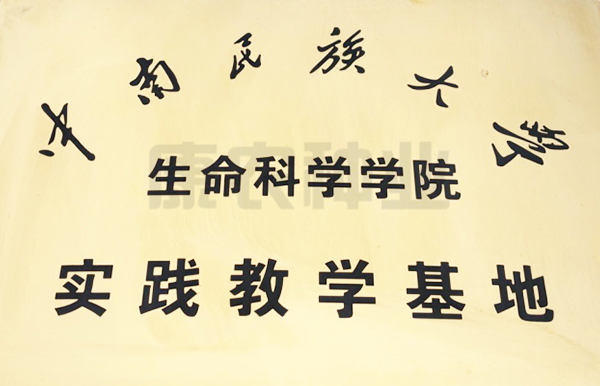 中南民族大学
生命科学学院
康农种业
实践教学基地